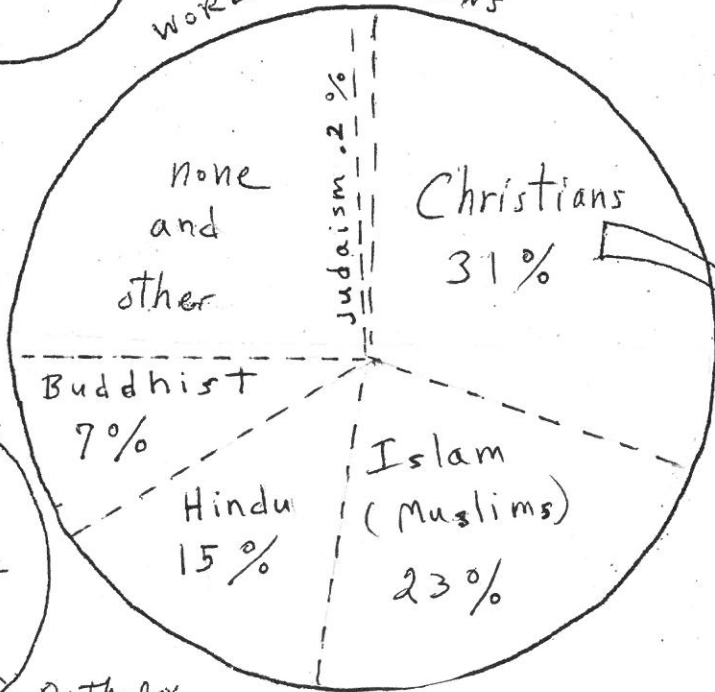 none
and
other
Judaism .2 %
Christians
31 %
Buddhist
7 %
Hindu
15 %
Islam
(Muslims)
23 %